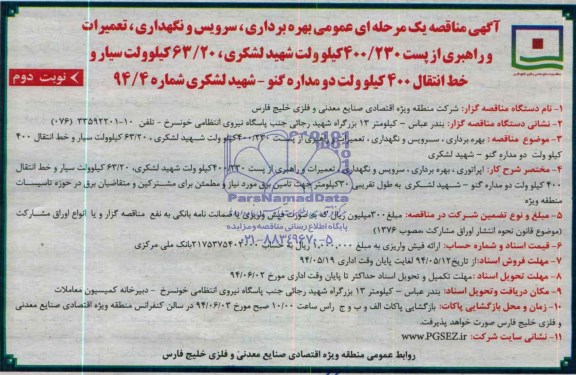 آگهی مناقصه یک مرحله ای عمومی بهره برداری، سرویس و نگهداری، تعمیرات
و راهبری از پست ۴۰۰/۲۳۰کیلو ولت شهید لشکری، ۶۳/۲۰کیلوولت سیار و
خط انتقال ۴۰۰ کیلو ولت دو مداره گنو - شهید لشکری شماره ۹۴/۴
نوبت دوم
۱- نام دستگاه مناقصه گزار: شرکت منطقه ویژه اقتصادی صنایع معدنی و فلزی خلیج فارس
۲- نشانی دستگاه مناقصه گزار: بندر عباس - کیلومتر ۱۳ بزرگراه شهید رجائی جنب پاسگاه نیروی انتظامی خونسرخ - تلفن ۱۰-۳۳۵۹۲۲۰۱ (۰۷۶)
۳- موضوع مناقصه : بهره برداری ، سرویس و نگهداری ، تعمیرات و راهبری از پست ۴۰۰/۲۳۰کیلو ولت شهید لشکری ، ۶۳/۲۰کیلوولت سیار و خط انتقال ۴۰۰
کیلو ولت دو مداره گنو - شهید لشکری
۴- مختصر شرح کار: اپراتوری ، بهره برداری ، سرویس و نگهداری ، تعمیرات و راهبری از پست ۴۰۰/۲۳۰کیلو ولت شهید لشکری، ۶۳/۲۰کیلوولت سیار و خط انتقال
۴۰۰ کیلو ولت دو مداره گنو - شهید لشکری به طول تقریبی ۳۰کیلومتر جهت تامین برق مورد نیاز و مطمئن برای مشترکین و متقاضیان برق در حوزه تاسیسات
منطقه ویژه
۵- مبلغ و نوع تضمین شرکت در مناقصه: مبلغ ۳۰۰میلیون ریال که به صورت فیش واریزی یا ضمانت نامه بانکی به نفع مناقصه گزار و یا انواع اوراق مشارکت
(موضوع قانون نحوه انتشار اوراق مشارکت مصوب ۱۳۷۶)
۶- قیمت اسناد و شماره حساب: ارائه فیش واریزی به مبلغ ۱.۰۰۰.۰۰۰ ریال به حساب ۲۱۷۵۳۷۵۴۰۴ بانک ملی مرکزی
۷- مهلت فروش اسناد: از تاریخ ۹۴/۰۵/۱۲ لغایت پایان وقت اداری ۹۴/۰۵/۱۹
۸- مهلت تحویل اسناد: مهلت تکمیل و تحویل اسناد حداکثر تا پایان وقت اداری مورخ ۹۴/۰۶/۰۲
۹- مکان دریافت و تحویل اسناد: بندر عباس - کیلومتر ۱۳ بزرگراه شهید رجائی جنب پاسگاه نیروی انتظامی خونسرخ - دبیرخانه کمیسیون معاملات
۱۰- زمان و محل بازگشایی پاکات: بازگشایی پاکات الف و ب و ج راس ساعت ۱۰/۰۰ صبح مورخ ۹۴/۰۶/۰۳ در سالن کنفرانس منطقه ویژه اقتصادی صنایع معدنی
و فلزی خلیج فارس صورت خواهد پذیرفت.
۱۱- نشانی سایت شرکت: www.PGSEZ.ir
روابط عمومی منطقه ویژه اقتصادی صنایع معدنی و فلزی خلیج فارس
ParsNamadData
پایگاه اطلاع رسانی مناقصه و مزایده
۰۲۱-۸۸۳۴۹۶۷۰-۵